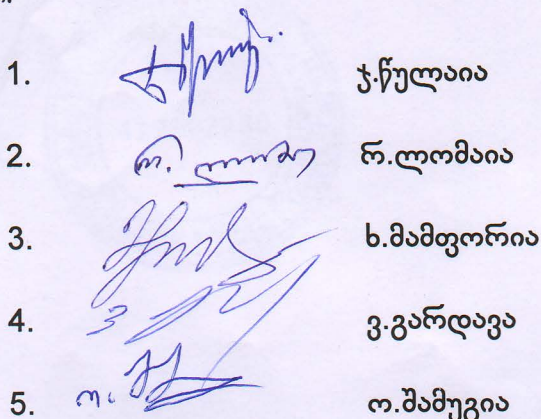 1. ჯ.წულაია
2. რ. ლომაია რ.ლომაია
3. ხ.მამფორია
4. ვ.გარდავა
5. ო.შამუგია